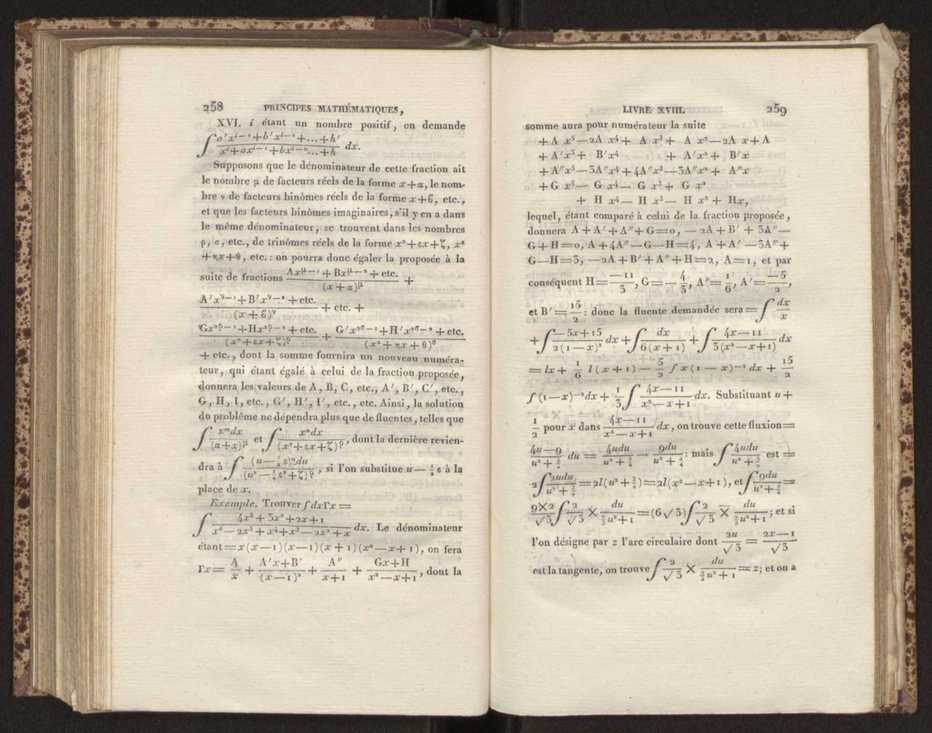 258 PRINCIPES MATHÉMATIQUES,
XVI. i étant un nombre positif, on demande
∫ (a′xⁱ⁻¹+b′xⁱ⁻²+...+h′)/(xⁱ+axⁱ⁻¹+bxⁱ⁻²...+h) dx.
Supposons que le dénominateur de cette fraction ait
le nombre μ de facteurs réels de la forme x+α, le nom-
bre ν de facteurs binômes réels de la forme x+ϐ, etc.,
et que les facteurs binômes imaginaires, s'il y en a dans
le même dénominateur, se trouvent dans les nombres
ρ, σ, etc., de trinômes réels de la forme x²+εx+ζ, x²
+ηx+θ, etc. : on pourra donc égaler la proposée à la
suite de fractions (Axᵘ⁻¹+Bxᵘ⁻²+etc.)/(x+α)ᵘ +
(A′xᵛ⁻¹+B′xᵛ⁻²+etc.)/(x+ϐ)ᵛ + etc. +
(Gx²ᵖ⁻¹+Hx²ᵖ⁻²+etc.)/(x²+εx+ζ)ᵖ + (G′x²σ⁻¹+H′x²σ⁻²+etc.)/(x²+ηx+θ)σ
+ etc., dont la somme fournira un nouveau numéra-
teur, qui étant égalé à celui de la fraction proposée,
donnera les valeurs de A, B, C, etc., A′, B′, C′, etc.,
G, H, I, etc., G′, H′, I′, etc., etc. Ainsi, la solution
du problème ne dépendra plus que de fluentes, telles que
∫ xᵐdx/(α+x)ᵘ et ∫ xⁿdx/(x²+εx+ζ)ᵖ, dont la dernière revien-
dra à ∫ (u−½ε)ⁿdu/(u²−¼ε²+ζ)ᵖ, si l'on substitue u−½ε à la
place de x.
Exemple. Trouver ∫dxΓx =
∫ (4x²+3x²+2x+1)/(x⁶−2x⁵+x⁴+x³−2x²+x) dx. Le dénominateur
étant=x(x−1)(x−1)(x+1)(x²−x+1), on fera
Γx= A/x + (A′x+B′)/(x−1)² + A″/(x+1) + (Gx+H)/(x²−x+1), dont la
LIVRE XVIII. 259
somme aura pour numérateur la suite
+A x⁵−2A x⁴+ A x³+ A x²−2A x+A
+A′x⁵+ B′x⁴ + A′x²+ B′x
+A″x⁵−3A″x⁴+4A″x³−3A″x²+ A″x
+G x⁵− G x⁴− G x³+ G x²
+ H x⁴− H x³− H x²+ Hx,
lequel, étant comparé à celui de la fraction proposée,
donnera A+A′+A″+G=0, −2A+B′+3A″−
G+H=0, A+4A″−G−H=4, A+A′−3A″+
G−H=3, −2A+B′+A″+H=2, A=1, et par
conséquent H=−11/3, G=−4/3, A″=1/6, A′=−5/2,
et B′=15/2 : donc la fluente demandée sera=∫ dx/x
+∫ (−5x+15)/2(1−x)² dx+∫ dx/6(x+1) +∫ (4x−11)/3(x²−x+1) dx
=lx+ 1/6 l(x+1)− 5/2 ∫x(1−x)⁻²dx+ 15/2
∫(1−x)⁻²dx+ 1/3 ∫ (4x−11)/(x²−x+1) dx. Substituant u+
1/2 pour x dans (4x−11)/(x²−x+1) dx, on trouve cette fluxion=
(4u−9)/(u²+¾) du = 4udu/(u²+¾) − 9du/(u²+¾) : mais ∫ 4udu/(u²+¾) est =
2∫ 2udu/(u²+¾) =2l(u²+¾)=2l(x²−x+1), et ∫ 9du/(u²+¾) =
9×2/√3 ∫ 2/√3 × du/(4/3 u²+1) =(6√3)∫ 2/√3 × du/(4/3 u²+1) ; et si
l'on désigne par z l'arc circulaire dont 2u/√3 = (2x−1)/√3
est la tangente, on trouve ∫ 2/√3 × du/(4/3 u²+1) =z; et on a